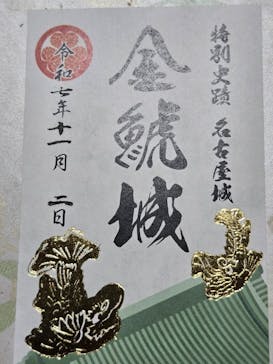 特別史蹟 名古屋城
金鯱城
令和七年十一月 二日